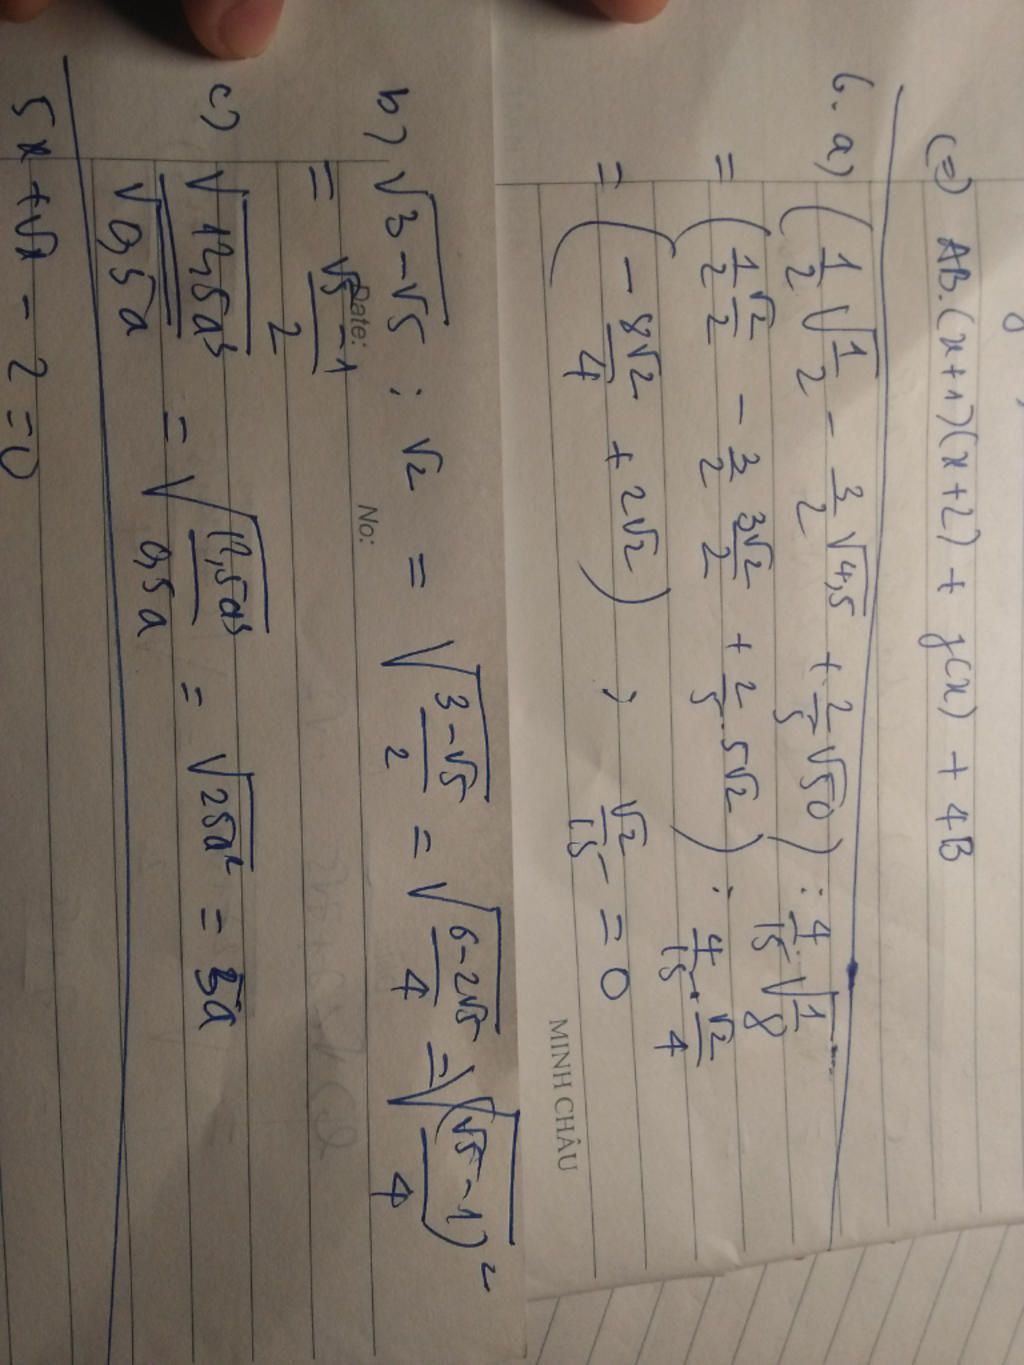 (=) AB.(x+1)(x+2) + g(x) + 4B
6. a) (1/2 √(1/2) - 3/2 √4,5 + 2/5 √50) : 4/15 √(1/8)
= (1/2 √2/2 - 3/2 3√2/2 + 2/5 . 5√2) : 4/15 . √2/4
= (-8√2/4 + 2√2) : √2/15 = 0
MINH CHÂU
b) √(3-√5) : √2 = √((3-√5)/2) = √((6-2√5)/4) = √((√5-1)²/4)
Date: No:
= (√5-1)/2
c) √(12,5a³)/√(0,5a) = √(12,5a³/0,5a) = √(25a²) = 5a
5x + √x - 2 = 0